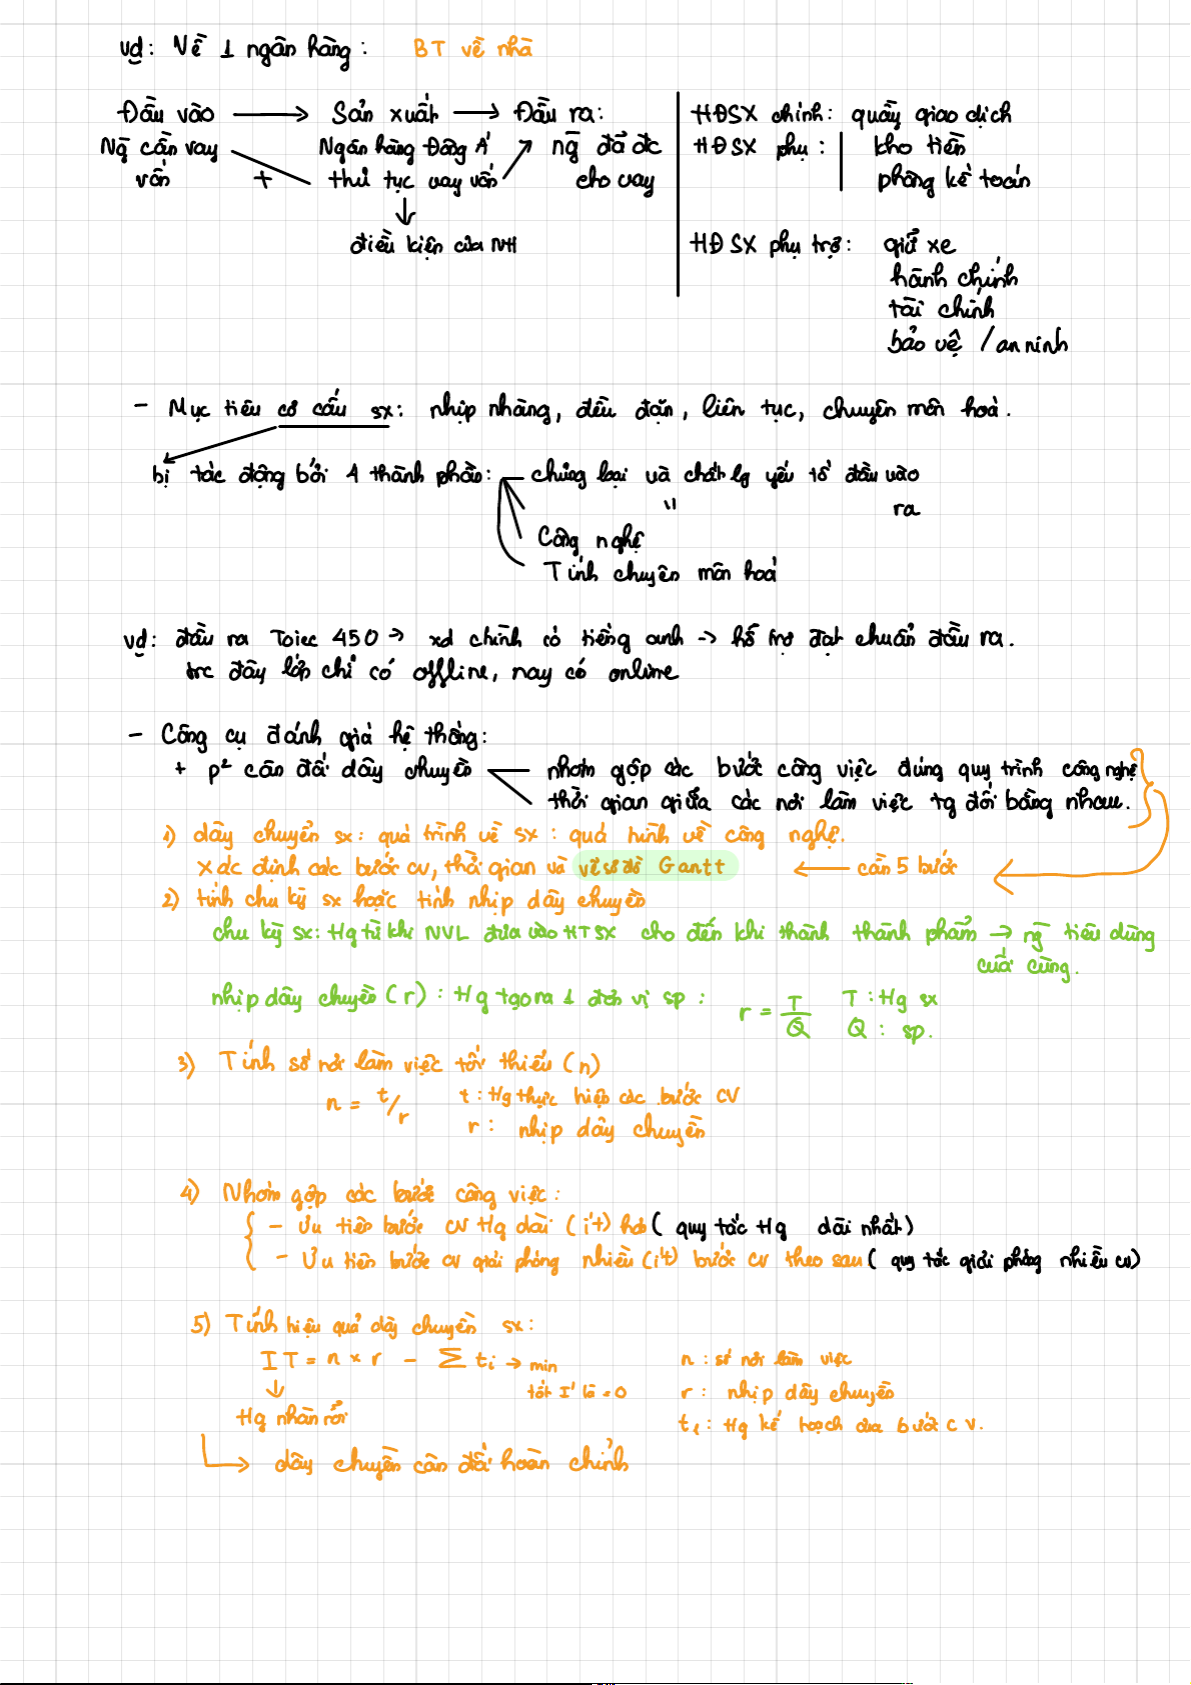 vd: Về 1 ngân hàng: BT về nhà
Đầu vào → Sản xuất → Đầu ra:
Ng̃ cần vay vốn + Ngân hàng Đông Á thủ tục vay vốn ng̃ đã đc cho vay
↓
điều kiện của NH
HĐSX chính: quầy giao dịch
HĐSX phụ: kho tiền
phòng kế toán
HĐSX phụ trợ: giữ xe
hành chính
tài chính
bảo vệ / an ninh
- Mục tiêu cơ cấu sx: nhịp nhàng, đều đặn, liên tục, chuyên môn hoá.
bị tác động bởi 4 thành phần: chủng loại và chất lg yếu tố đầu vào
" ra
Công nghệ
Tính chuyên môn hoá
vd: đầu ra Toiec 450 → xd chính có tiếng anh → hỗ trợ đạt chuẩn đầu ra.
trc đây lớp chỉ có offline, nay có online
- Công cụ đánh giá hệ thống:
+ p² cân đối dây chuyền nhóm gộp các bước công việc đúng quy trình công nghệ
thời gian giữa các nơi làm việc tg đối bằng nhau.
1) dây chuyền sx: quá trình về sx: quá hình về công nghệ.
xác định các bước cv, thời gian và vẽ sơ đồ Gantt ← cần 5 bước
2) tính chu kỳ sx hoặc tính nhịp dây chuyền
chu kỳ sx: Hg từ khi NVL đưa vào HTSX cho đến khi thành thành phẩm → ng̃ tiêu dùng
cuối cùng.
nhịp dây chuyền (r): Hg tạo ra 1 đơn vị sp: r = T/Q T: Hg sx
Q: sp.
3) Tính số nơi làm việc tối thiểu (n)
n = t/r t: Hg thực hiện các bước CV
r: nhịp dây chuyền
4) Nhóm gộp các bước công việc:
- Ưu tiên bước CV Hg dài (ít) hơn (quy tắc Hg dài nhất)
- Ưu tiên bước cv giải phóng nhiều (ít) bước cv theo sau (quy tắc giải phóng nhiều cv)
5) Tính hiệu quả dây chuyền sx:
IT = n x r - Σ ti → min n: số nơi làm việc
↓ tốt I' là = 0 r: nhịp dây chuyền
Hg nhàn rỗi ti: Hg kế hoạch của bước CV.
→ dây chuyền cân đối hoàn chỉnh